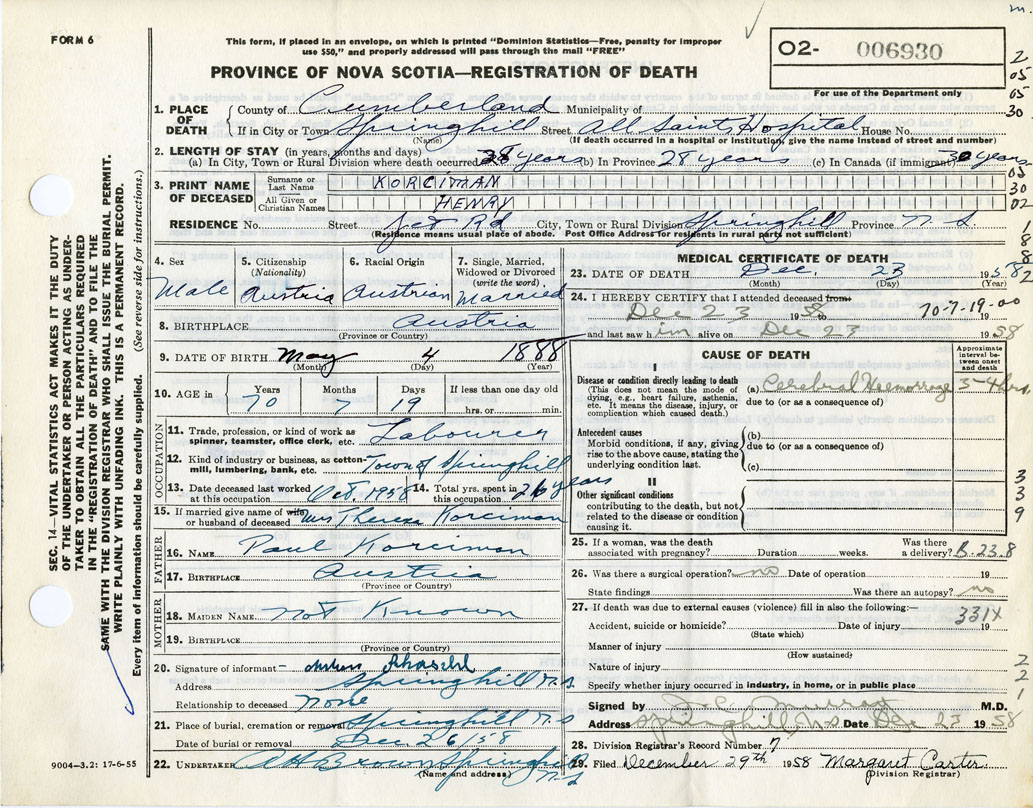 FORM 6
This form, if placed in an envelope, on which is printed "Dominion Statistics—Free, penalty for improper
use $50," and properly addressed will pass through the mail "FREE"
O2- 006930
For use of the Department only
PROVINCE OF NOVA SCOTIA—REGISTRATION OF DEATH
1. PLACE OF DEATH County of Cumberland Municipality of
If in City or Town Springhill Street All Saints Hospital House No.
(Name) (If death occurred in a hospital or institution, give the name instead of street and number)
2. LENGTH OF STAY (in years, months and days)
(a) In City, Town or Rural Division where death occurred 28 years (b) In Province 28 years (c) In Canada (if immigrant) 30 years
3. PRINT NAME OF DECEASED Surname or Last Name KORCIMAN
All Given or Christian Names HENRY
RESIDENCE No. Street Jct Rd City, Town or Rural Division Springhill Province N S
(Residence means usual place of abode. Post Office Address for residents in rural parts not sufficient)
4. Sex Male
5. Citizenship (Nationality) Austria
6. Racial Origin Austrian
7. Single, Married, Widowed or Divorced (write the word) Married
8. BIRTHPLACE Austria
(Province or Country)
9. DATE OF BIRTH May 4 1888
(Month) (Day) (Year)
10. AGE in Years 70 Months 7 Days 19 If less than one day old hrs. or min.
OCCUPATION
11. Trade, profession, or kind of work as spinner, teamster, office clerk, etc. Labourer
12. Kind of industry or business, as cotton-mill, lumbering, bank, etc. Town of Springhill
13. Date deceased last worked at this occupation Oct 1958 14. Total yrs. spent in this occupation 26 years
15. If married give name of wife or husband of deceased Mrs Theresa Korciman
FATHER
16. NAME Paul Korciman
17. BIRTHPLACE Austria
(Province or Country)
MOTHER
18. MAIDEN NAME not Known
19. BIRTHPLACE
(Province or Country)
20. Signature of informant—
Address Springhill N.S
Relationship to deceased none
21. Place of burial, cremation or removal Springhill N S
Date of burial or removal Dec 26 1958
22. UNDERTAKER A H Brown Springhill N-S
(Name and address)
MEDICAL CERTIFICATE OF DEATH
23. DATE OF DEATH Dec. 23 1958
(Month) (Day) (Year)
24. I HEREBY CERTIFY that I attended deceased from
Dec 23 1958 to 70-7-19-00
and last saw him alive on Dec 23 1958
CAUSE OF DEATH
Approximate interval between onset and death
I
Disease or condition directly leading to death (a) Cerebral Haemorrage 3-4 hrs
(This does not mean the mode of dying, e.g., heart failure, asthenia, etc. It means the disease, injury, or complication which caused death.)
due to (or as a consequence of)
Antecedent causes (b)
Morbid conditions, if any, giving rise to the above cause, stating the underlying condition last.
due to (or as a consequence of)
(c)
II
Other significant conditions
contributing to the death, but not related to the disease or condition causing it.
25. If a woman, was the death associated with pregnancy? Duration weeks. Was there a delivery? B-23.8
26. Was there a surgical operation? no Date of operation 19
State findings Was there an autopsy? no
27. If death was due to external causes (violence) fill in also the following:—
331X
Accident, suicide or homicide? Date of injury 19
(State which)
Manner of injury
(How sustained)
Nature of injury
Specify whether injury occurred in industry, in home, or in public place
Signed by Murray M.D.
Address Springhill N.S. Date Dec 23 1958
28. Division Registrar's Record Number 7
29. Filed December 29th 1958 Margaret Carter
(Division Registrar)
9004—3.2: 17-6-55
SEC. 14—VITAL STATISTICS ACT MAKES IT THE DUTY
OF THE UNDERTAKER OR PERSON ACTING AS UNDER-
TAKER TO OBTAIN ALL THE PARTICULARS REQUIRED
IN THE "REGISTRATION OF DEATH" AND TO FILE THE
SAME WITH THE DIVISION REGISTRAR WHO SHALL ISSUE THE BURIAL PERMIT.
WRITE PLAINLY WITH UNFADING INK. THIS IS A PERMANENT RECORD.
Every item of information should be carefully supplied. (See reverse side for instructions.)
2
05
65
30
05
30
02
1
8
8
2
3
3
9
2
2
1